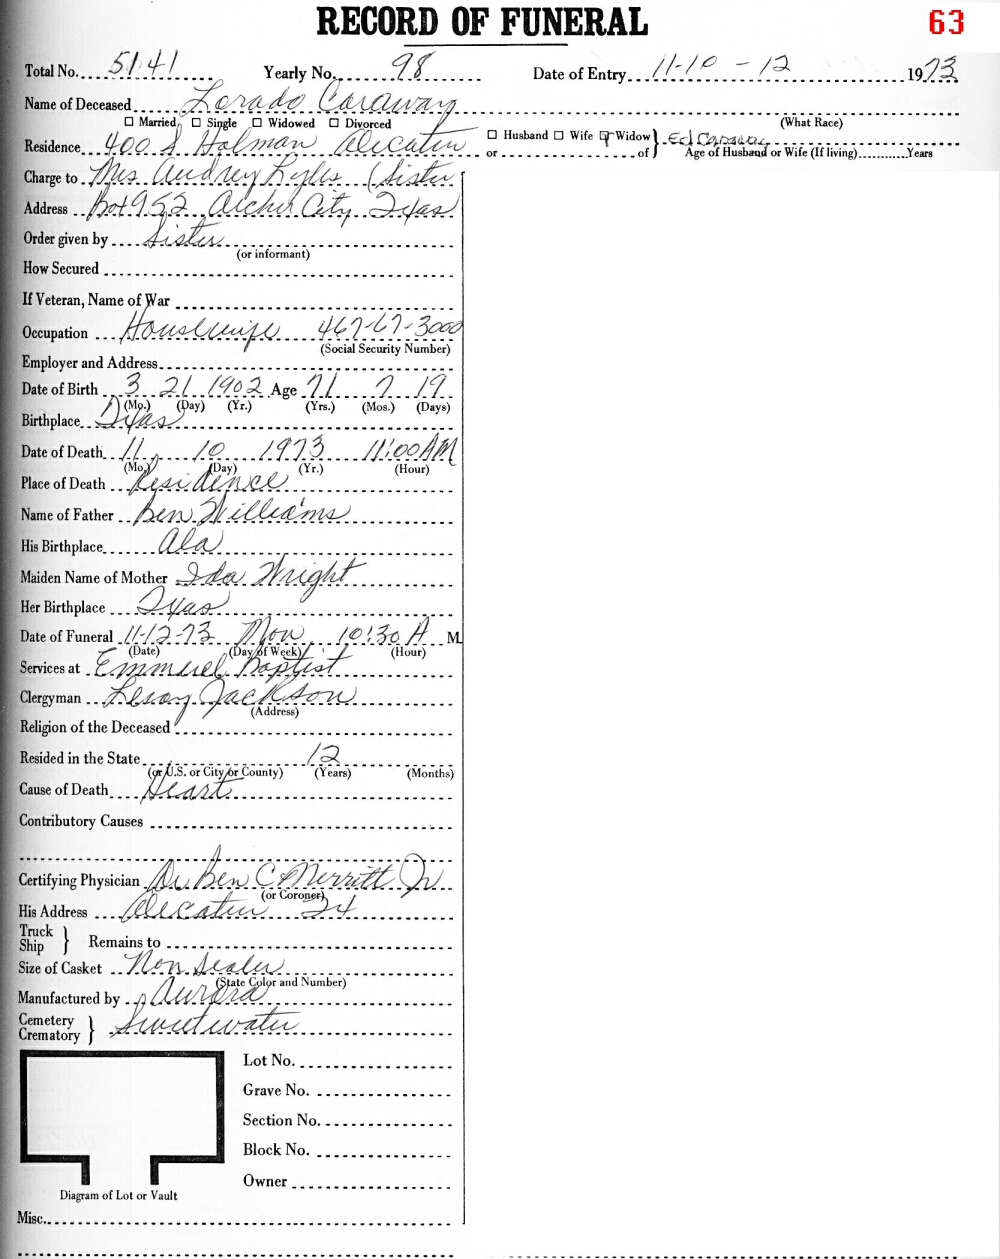 RECORD OF FUNERAL
63
Total No. 5141 Yearly No. 98 Date of Entry 11-10 - 12 1973
Name of Deceased Lorado Caraway
☐ Married ☐ Single ☐ Widowed ☐ Divorced (What Race)
Residence 400 S Holman Decatur ☐ Husband ☐ Wife ☐ Widow } Ed Caraway
or of Age of Husband or Wife (If living) Years
Charge to Mrs Audrey Lyles (Sister
Address Box 952 Archer City, Texas
Order given by Sister
(or informant)
How Secured
If Veteran, Name of War
Occupation Housewife 467-67-3000
(Social Security Number)
Employer and Address
Date of Birth 3 21 1902 Age 71 7 19
(Mo.) (Day) (Yr.) (Yrs.) (Mos.) (Days)
Birthplace Texas
Date of Death 11 10 1973 11:00 AM
(Mo.) (Day) (Yr.) (Hour)
Place of Death Residence
Name of Father Ben Williams
His Birthplace Ala
Maiden Name of Mother Ida Wright
Her Birthplace Texas
Date of Funeral 11-12-73 Mon 10:30 A M.
(Date) (Day of Week) (Hour)
Services at Emmanuel Baptist
Clergyman Leroy Jackson
(Address)
Religion of the Deceased
Resided in the State 12
(or U.S. or City or County) (Years) (Months)
Cause of Death Heart
Contributory Causes
Certifying Physician Dr Ben C Merritt Jr
(or Coroner)
His Address Decatur
Truck
Ship } Remains to
Size of Casket Non Sealer
(State Color and Number)
Manufactured by Aurora
Cemetery
Crematory } Sweetwater
Lot No.
Grave No.
Section No.
Block No.
Owner
Diagram of Lot or Vault
Misc.